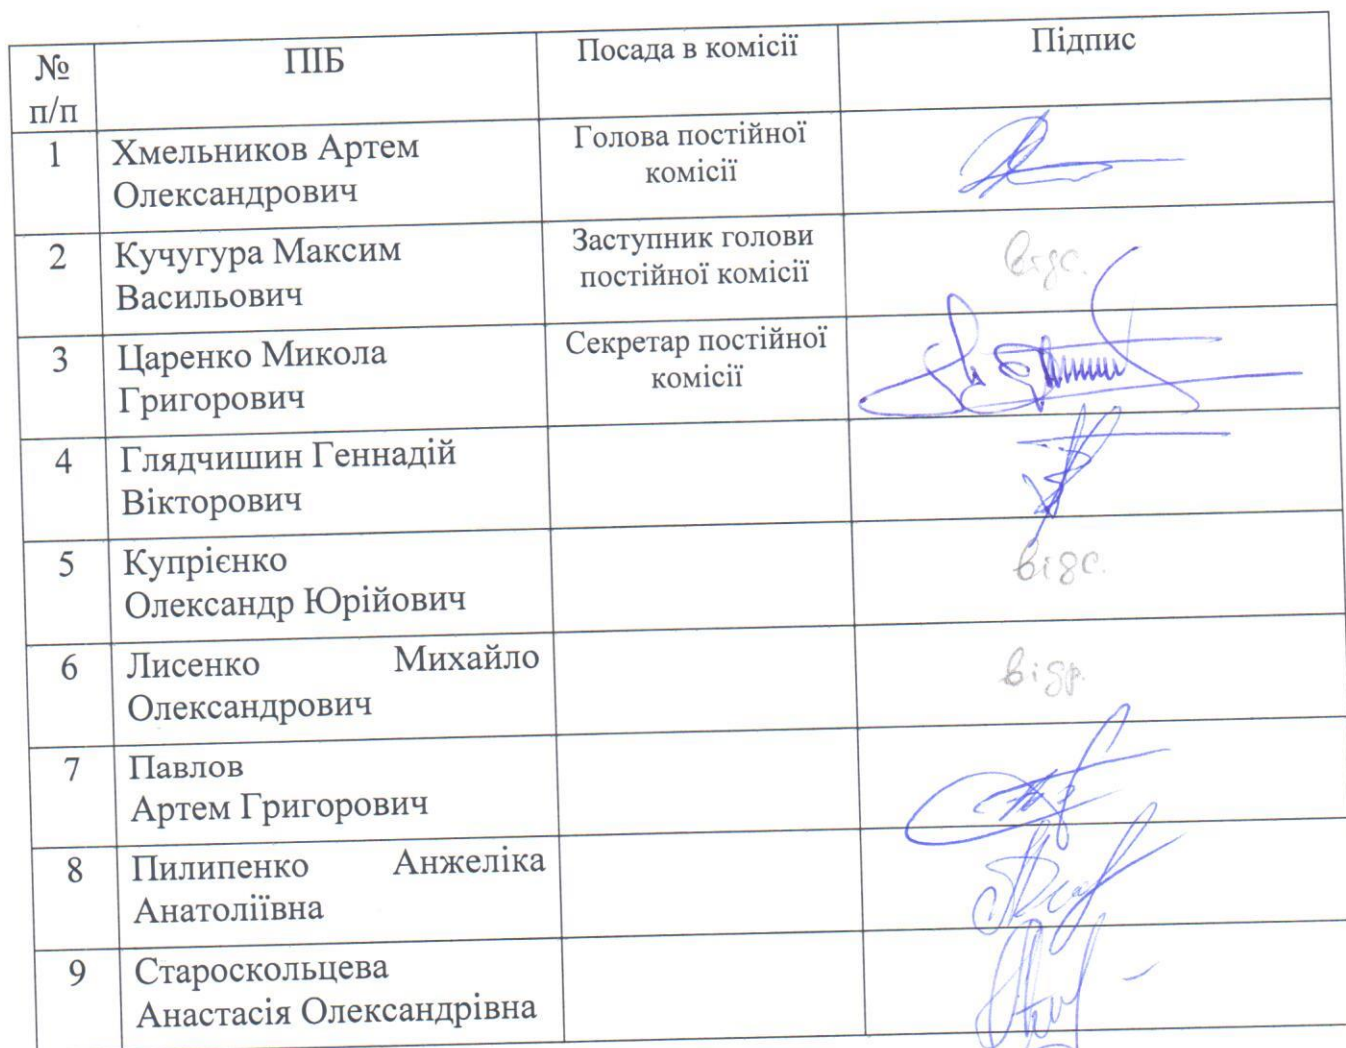 № п/п ПІБ Посада в комісії Підпис
1 Хмельников Артем Олександрович Голова постійної комісії
2 Кучугура Максим Васильович Заступник голови постійної комісії відс.
3 Царенко Микола Григорович Секретар постійної комісії
4 Глядчишин Геннадій Вікторович
5 Купрієнко Олександр Юрійович відс.
6 Лисенко Михайло Олександрович відр.
7 Павлов Артем Григорович
8 Пилипенко Анжеліка Анатоліївна
9 Староскольцева Анастасія Олександрівна